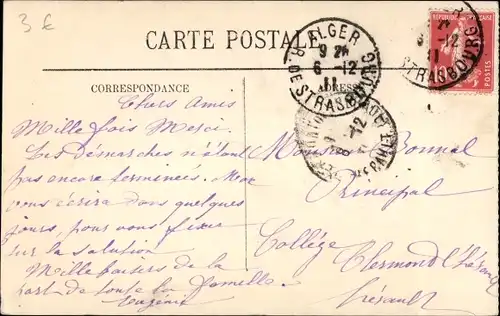 3 €
CARTE POSTALE
ALGER
R. DE STRASBOURG
9 24
6 -12
11
STRASBOURG
6 -12
11
10
POSTES
CORRESPONDANCE
ADRESSE
Chers Amis
Mille fois Merci.
Les démarches n'étant
pas encore terminées. Max
vous écrira dans quelques
jours, pour vous fixer
sur la solution
Meille baisers de la
part de toute la famille
Eugénie
Monsieur Bonnal
Principal
Collège
Clermond l'Hérault
Hérault